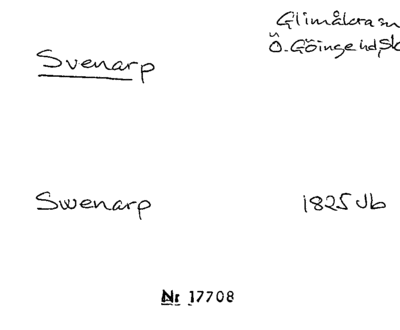 Glimåkra sn
Svenarp
Ö. Göinge hd, Sk
Swenarp
1825 Jb
Nr 17708